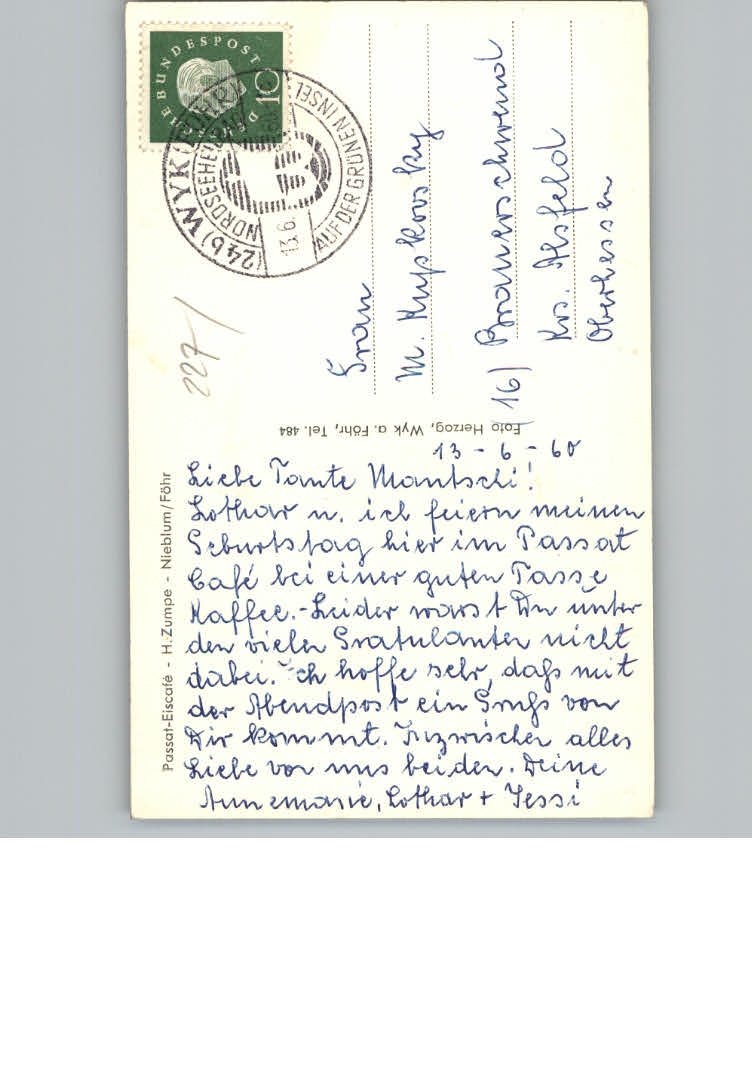 Passat-Eiscafé - H.Zumpe - Nieblum/Föhr
13 - 6 - 60
Liebe Tante Mantschi!
Lothar u. ich feiern meinen
Geburtstag hier im Passat
Café bei einer guten Tasse
Kaffee.- Leider warst Du unter
den vielen Gratulanten nicht
dabei. Ich hoffe sehr, daß mit
der Abendpost ein Gruß von
Dir kommt. Inzwischen alles
Liebe von uns beiden. Deine
Annemarie, Lothar + Jessi
Foto Herzog, Wyk a. Föhr, Tel. 484
DEUTSCHE BUNDESPOST
10
(24b) WYK (FÖHR)
NORDSEEHEILBAD
13.6.
AUF DER GRÜNEN INSEL
227/
Frau
M. Kupkovsky
16) Brauerschwend
Krs. Alsfeld
Oberhessen